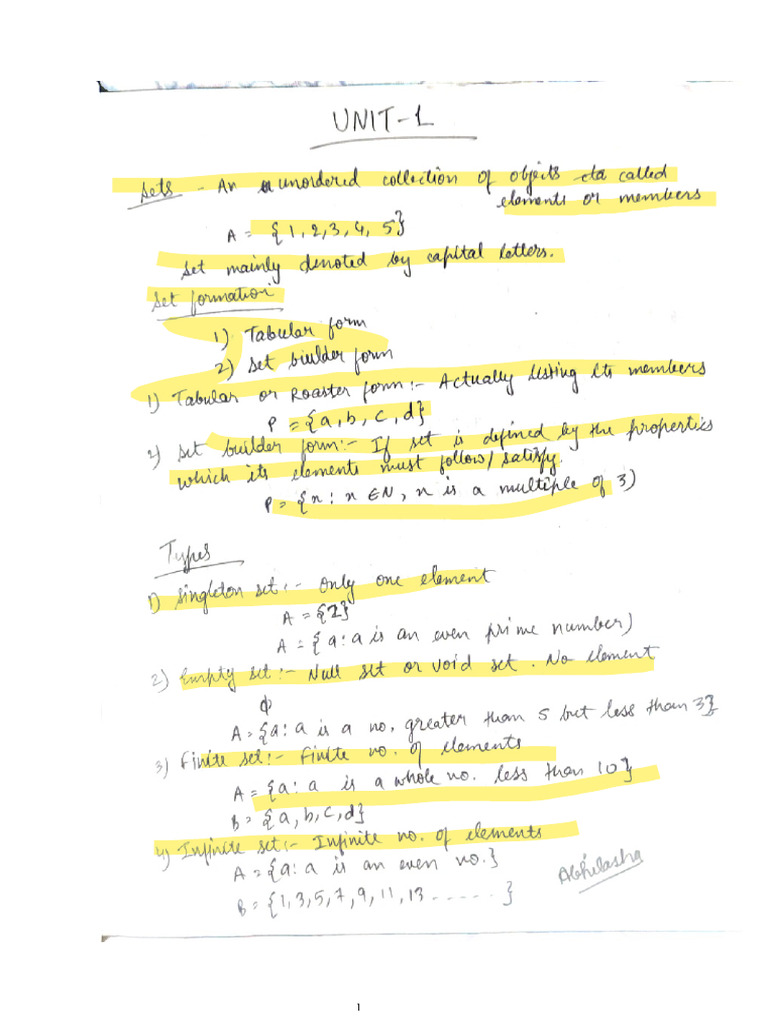 UNIT-1
Sets - An unordered collection of objects called
elements or members
A = {1, 2, 3, 4, 5}
Set mainly denoted by capital letters.
Set formation
1) Tabular form
2) Set biulder form
1) Tabular or Roaster form:- Actually listing its members
P = {a, b, c, d}
2) Set builder form:- If set is defined by the properties
which its elements must follow/satisfy.
P = {x : x ∈ N, x is a multiple of 3)
Types
1) Singleton set:- Only one element
A = {1}
A = {a : a is an even prime number)
2) Empty set:- Null set or void set. No element
ϕ
A = {a : a is a no. greater than 5 but less than 3}
3) Finite set:- Finite no. of elements
A = {a : a is a whole no. less than 10}
B = {a, b, c, d}
4) Infinite set:- Infinite no. of elements
A = {a : a is an even no.}
B = {1, 3, 5, 7, 9, 11, 13 ......}
Abhilasha
1